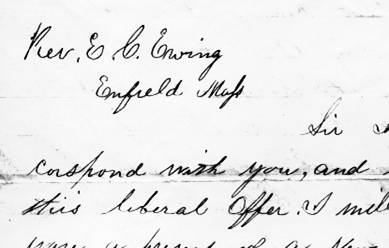 Rev. E. C. Ewing
Enfield Mass
Sir
corspond with you, and
this liberal offer. I will